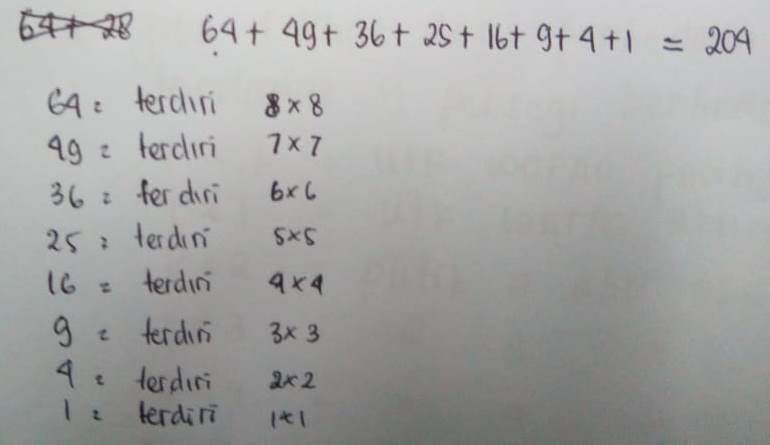 64 + 28 64 + 49 + 36 + 25 + 16 + 9 + 4 + 1 = 204
64 = terdiri 8 × 8
49 = terdiri 7 × 7
36 = terdiri 6 × 6
25 = terdiri 5 × 5
16 = terdiri 4 × 4
9 = terdiri 3 × 3
4 = terdiri 2 × 2
1 = terdiri 1 × 1